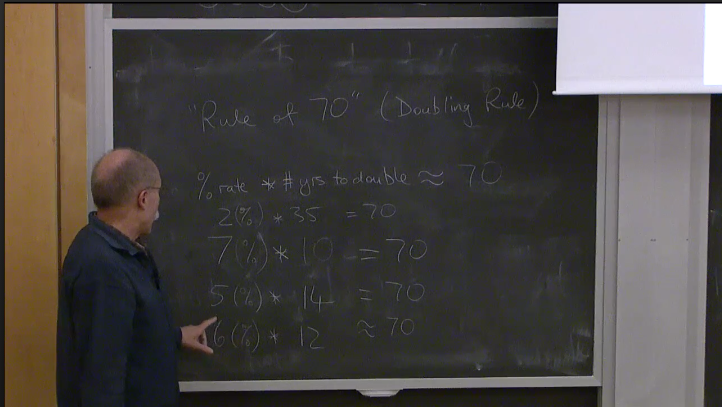 "Rule of 70" (Doubling Rule)
% rate * # yrs to double ≈ 70
2(%) * 35 = 70
7(%) * 10 = 70
5(%) * 14 = 70
6(%) * 12 ≈ 70